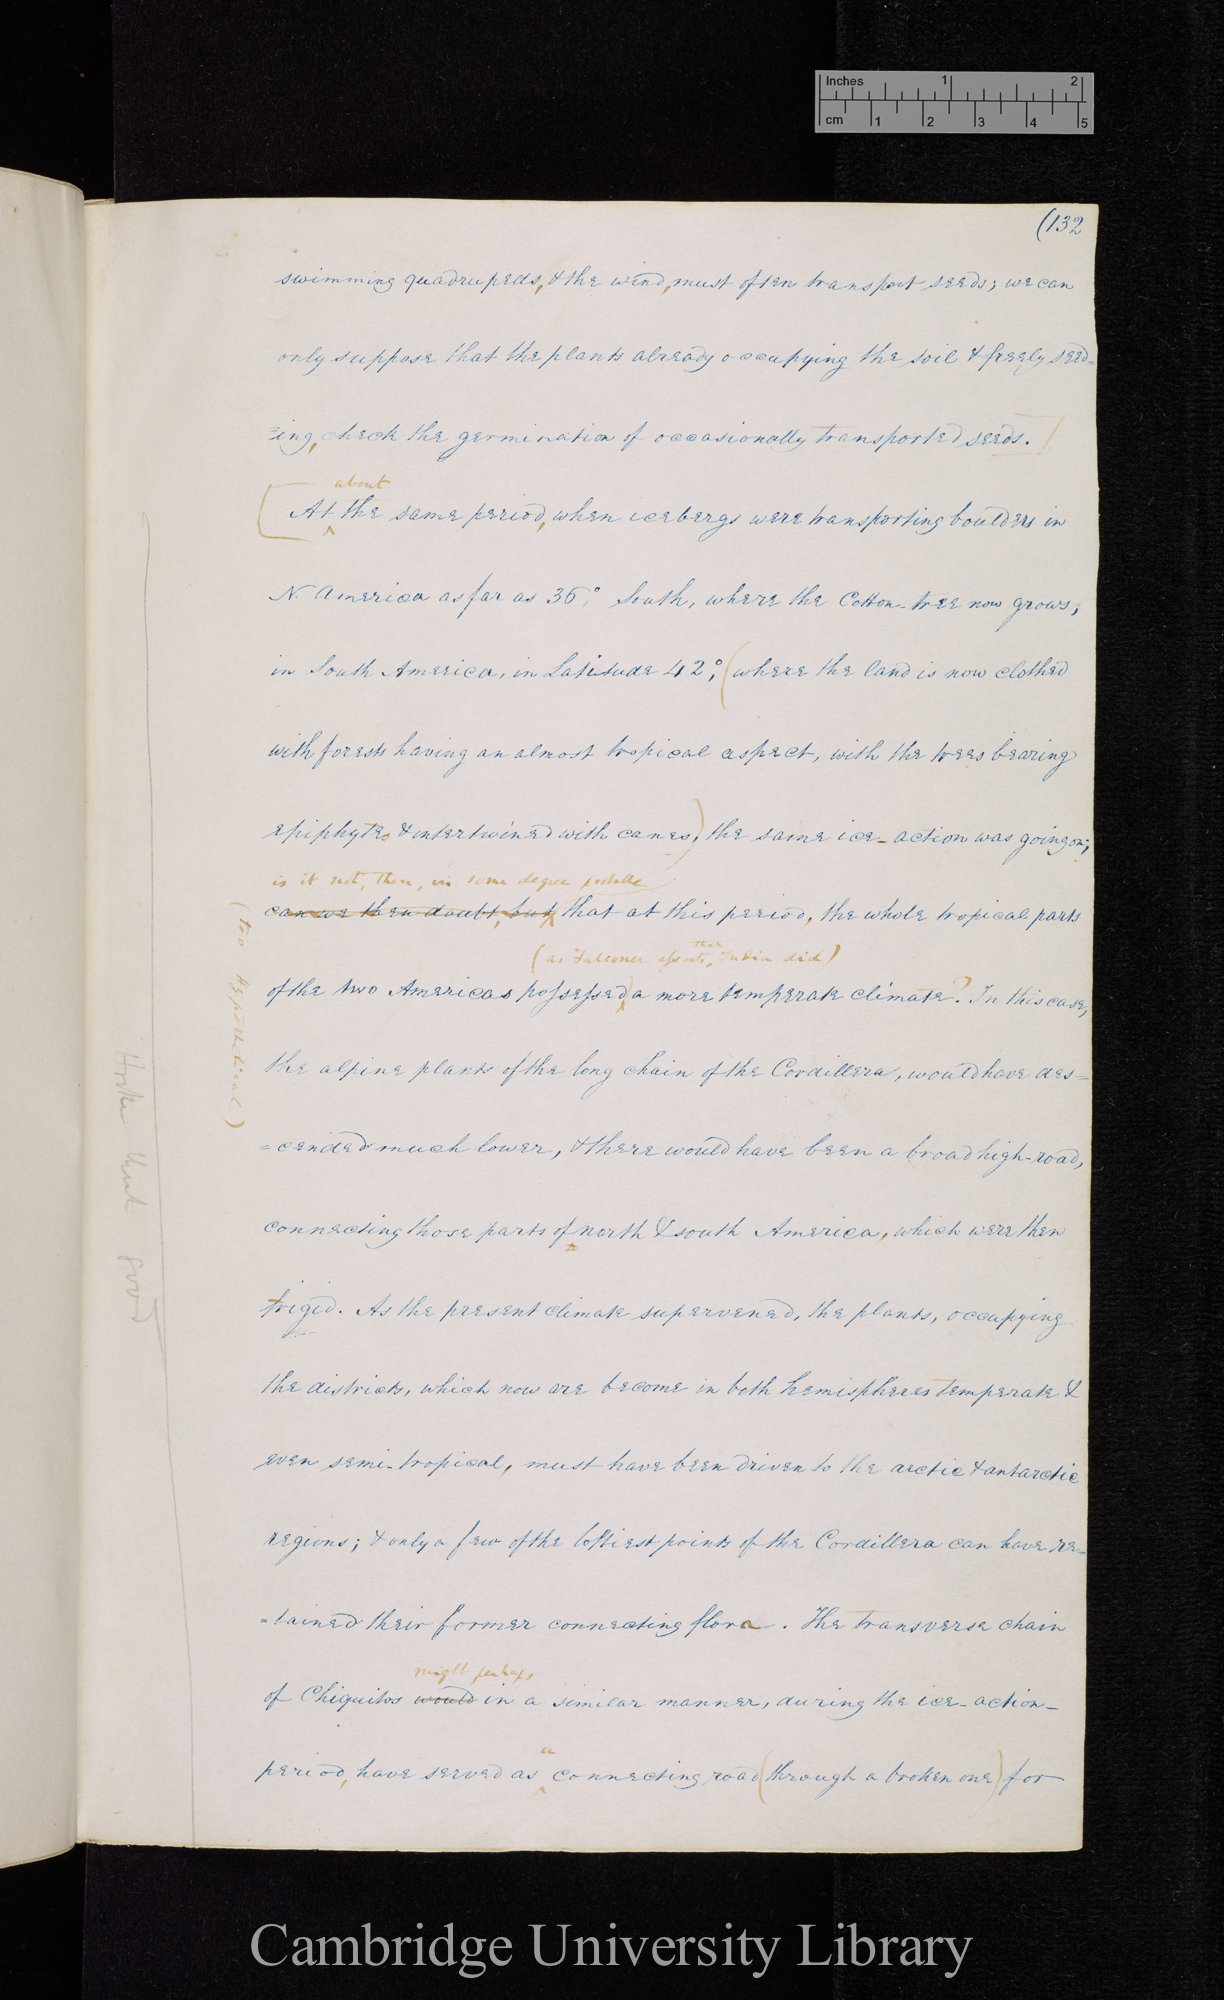 Inches 1 2
cm 1 2 3 4 5
(132
swimming quadrupeds, & the wind, must often transport seeds; we can
only suppose that the plants already occupying the soil & freely seed-
=ing, check the germination of occasionally transported seeds.]
about
[At the same period, when icebergs were transporting boulders in
N. America as far as 36° South, where the Cotton-tree now grows;
in South America, in Latitude 42°, (where the land is now clothed
with forests having an almost tropical aspect, with the trees bearing
epiphytes & intertwined with canes,) the same ice-action was going on;
is it not, then, in some degree probable
can we then doubt, but, that at this period, the whole tropical parts
(as Falconer asserts, that India did)
of the two Americas possessed a more temperate climate? In this case,
the alpine plants of the long chain of the Cordillera, would have des=
=cended much lower, & there would have been a broad high-road,
connecting those parts of north & south America, which were then
frigid. As the present climate supervened, the plants, occupying
the districts, which now are become in both hemispheres temperate &
even semi-tropical, must have been driven to the arctic & antarctic
regions; & only a few of the loftiest points of the Cordillera can have re-
=tained their former connecting flora. The transverse chain
might perhaps
of Chiquitos would in a similar manner, during the ice-action-
a
period, have served as connecting road (through a broken one) for
(too hypothetical)
Hooker thinks good
Cambridge University Library